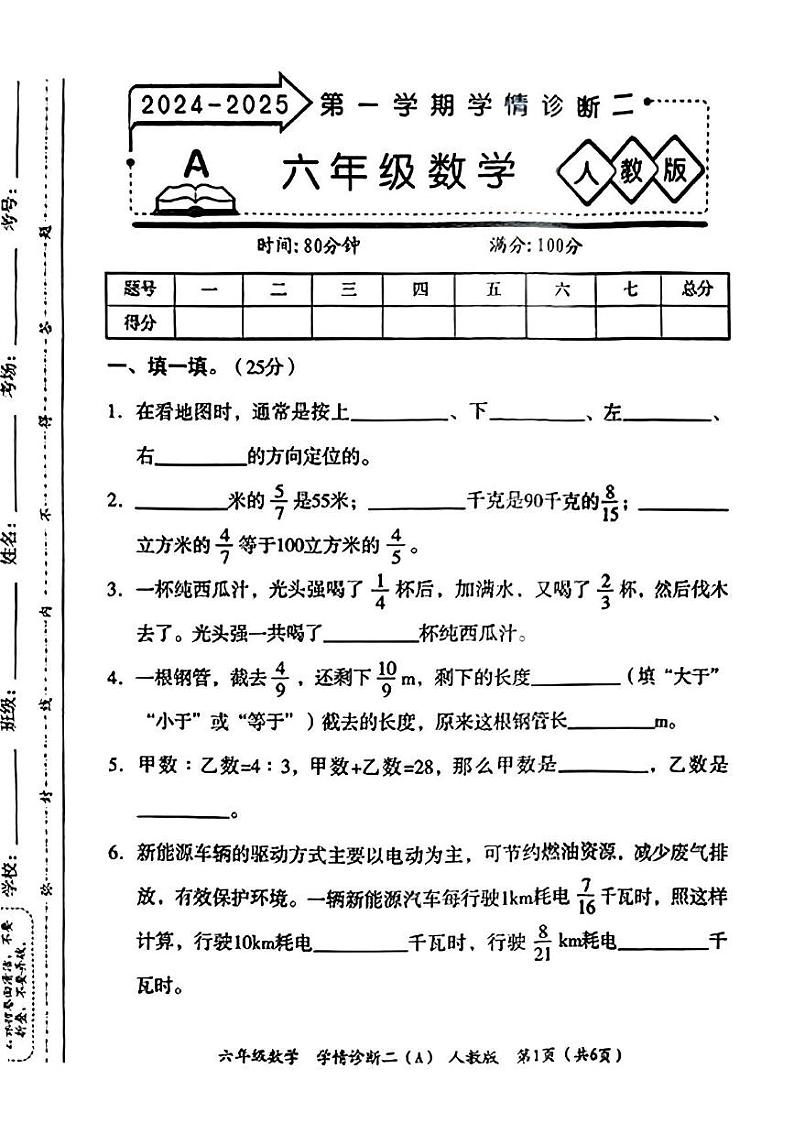 2024-2025 第一学期学情诊断二
A 六年级数学 人教版
时间:80分钟 满分:100分
题号 一 二 三 四 五 六 七 总分
得分
一、填一填。(25分)
1. 在看地图时，通常是按上________、下________、左________、
右________的方向定位的。
2. ________米的 5/7 是55米；________千克是90千克的8/15；________
立方米的 4/7 等于100立方米的 4/5 。
3. 一杯纯西瓜汁，光头强喝了 1/4 杯后，加满水，又喝了 2/3 杯，然后伐木
去了。光头强一共喝了________杯纯西瓜汁。
4. 一根钢管，截去 4/9 ，还剩下 10/9 m，剩下的长度________（填“大于”
“小于”或“等于”）截去的长度，原来这根钢管长________m。
5. 甲数∶乙数=4∶3，甲数+乙数=28，那么甲数是________，乙数是
________。
6. 新能源车辆的驱动方式主要以电动为主，可节约燃油资源，减少废气排
放，有效保护环境。一辆新能源汽车每行驶1km耗电 7/16 千瓦时，照这样
计算，行驶10km耗电________千瓦时，行驶 8/21 km耗电________千
瓦时。
六年级数学 学情诊断二（A） 人教版 第1页（共6页）
学校：________ 班级：________ 姓名：________ 考场：________ 考号：________
弥 封 线 内 不 得 答 题
折叠，不要弄破。